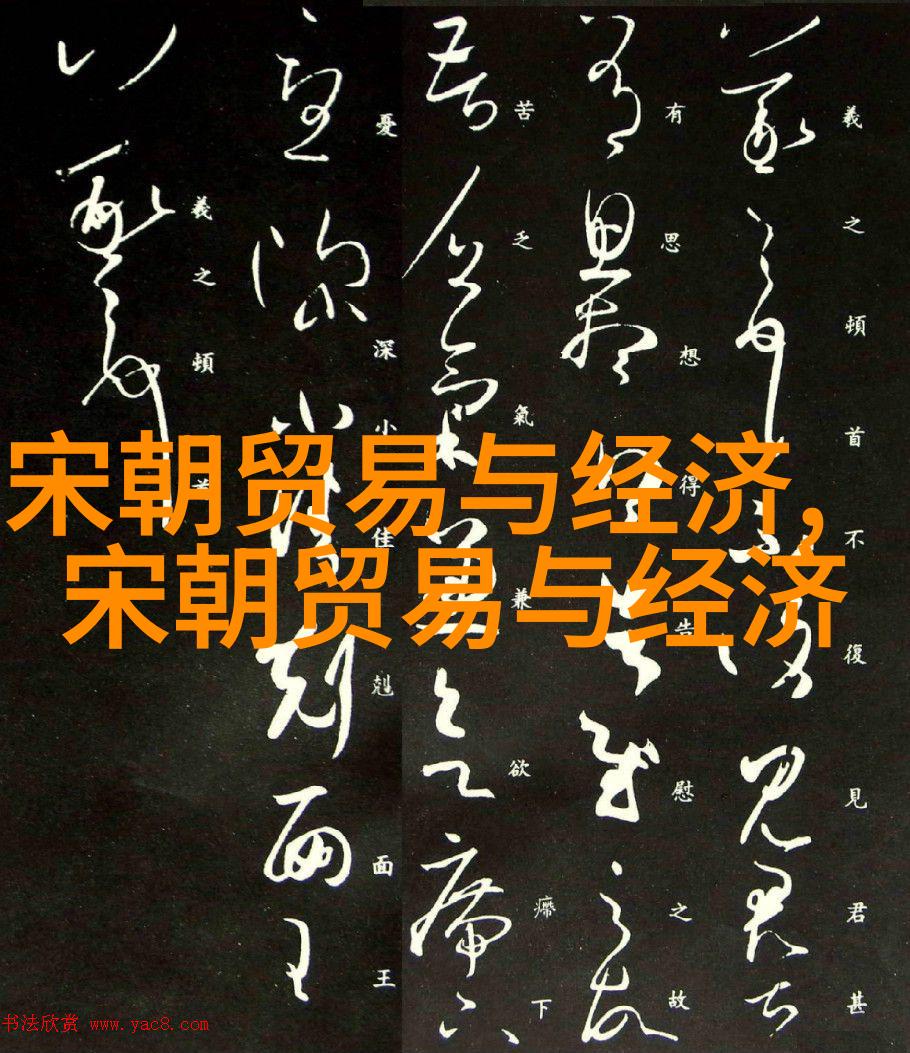 宋朝贸易与经济,
宋朝贸易与经济
羲之頓首不復見君甚
有思想得告慰之故
苦乏氣兼欲下
憂深小佳剋面王
羲之頓首
书法欣赏 www.yac8.com